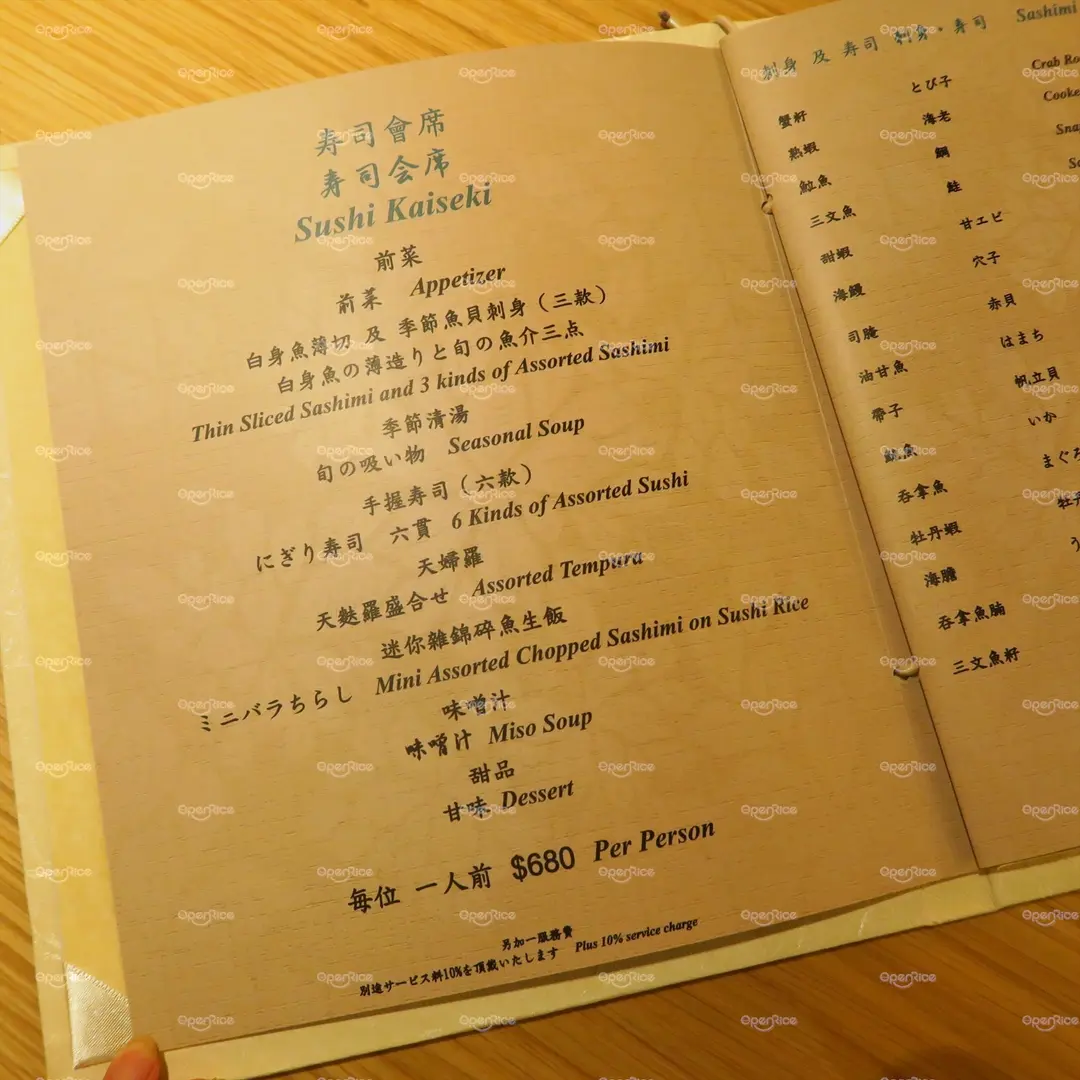 寿司會席
寿司会席
Sushi Kaiseki
前菜
前菜 Appetizer
白身魚薄切 及 季節魚貝刺身（三款）
白身魚の薄造りと旬の魚介三点
Thin Sliced Sashimi and 3 kinds of Assorted Sashimi
季節清湯
旬の吸い物 Seasonal Soup
手握寿司（六款）
にぎり寿司 六貫 6 Kinds of Assorted Sushi
天婦羅
天麩羅盛合せ Assorted Tempura
迷你雜錦碎魚生飯
ミニバラちらし Mini Assorted Chopped Sashimi on Sushi Rice
味噌汁
味噌汁 Miso Soup
甜品
甘味 Dessert
每位 一人前 $680 Per Person
另加一服務費
別途サービス料10%を頂戴いたします Plus 10% service charge
刺身 及 寿司 刺身・寿司 Sashimi
蟹籽 とび子 Crab
熟蝦 海老
鯛
三文魚 鮭
甜蝦 甘エビ
海鰻 穴子
赤貝
油甘魚 はまち
帶子 帆立貝
魷魚 いか
吞拿魚
牡丹蝦
海膽
吞拿魚腩
三文魚籽
OpenRice